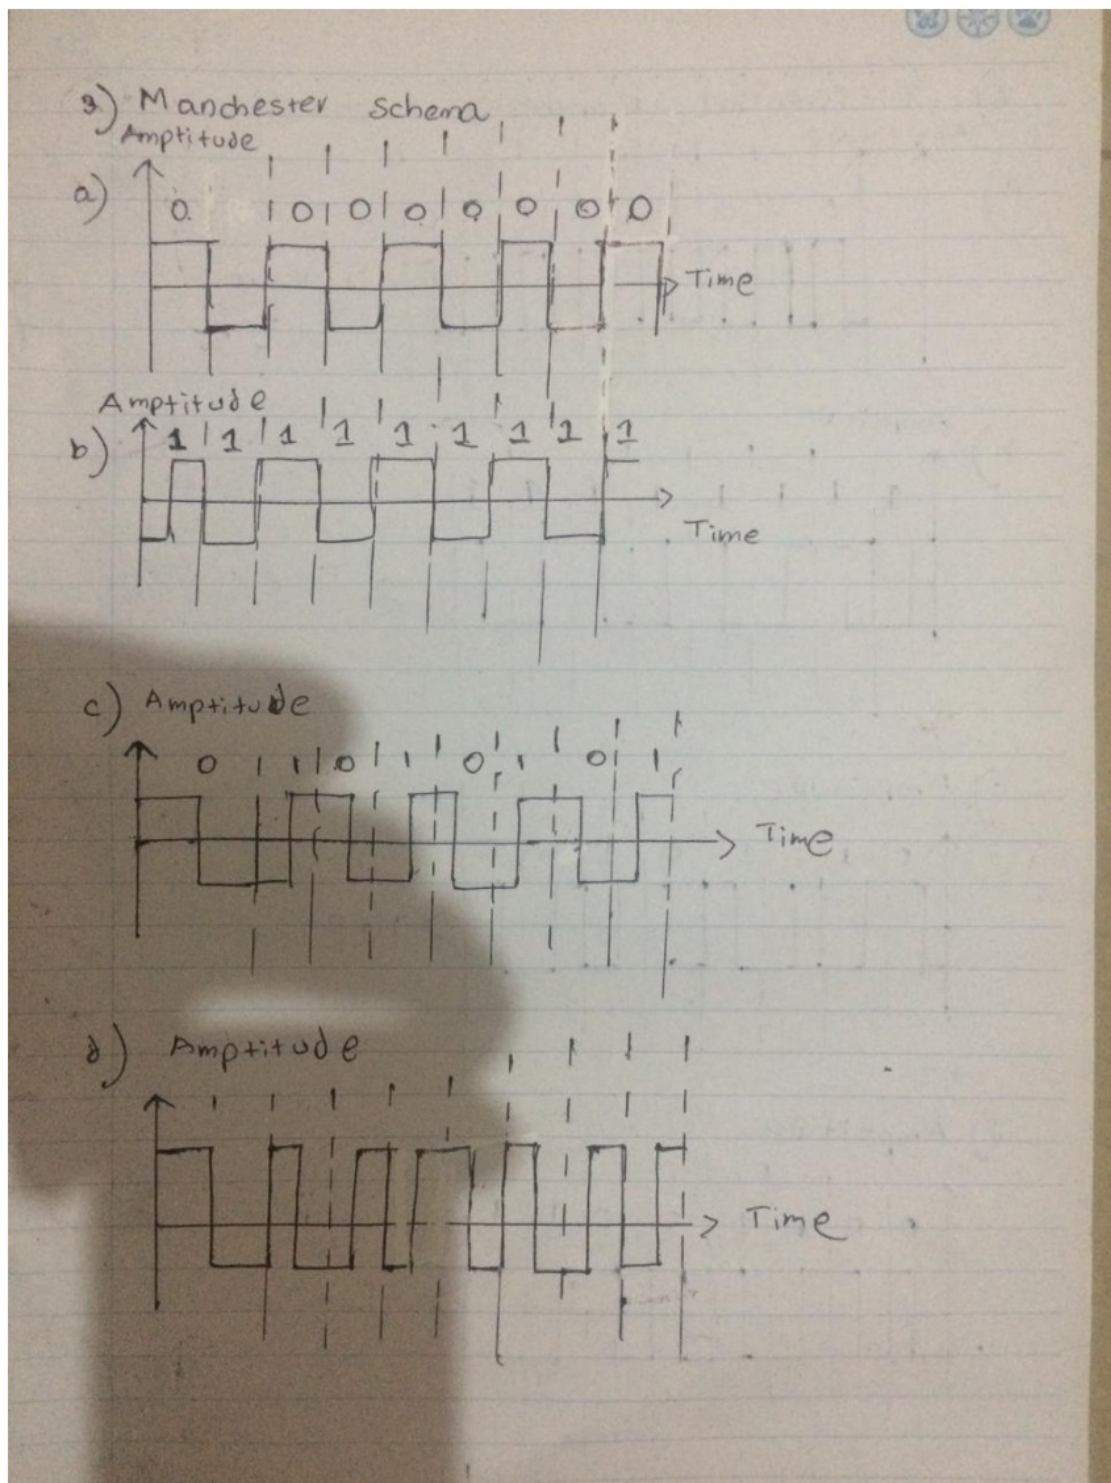 3) Manchester schema
Amptitude
a) 0 0 0 0 0 0 0 0
Time
Amptitude
b) 1 1 1 1 1 1 1 1 1
Time
c) Amptitude
0 1 1 0 1 0 1 0 1
Time
d) Amptitude
Time